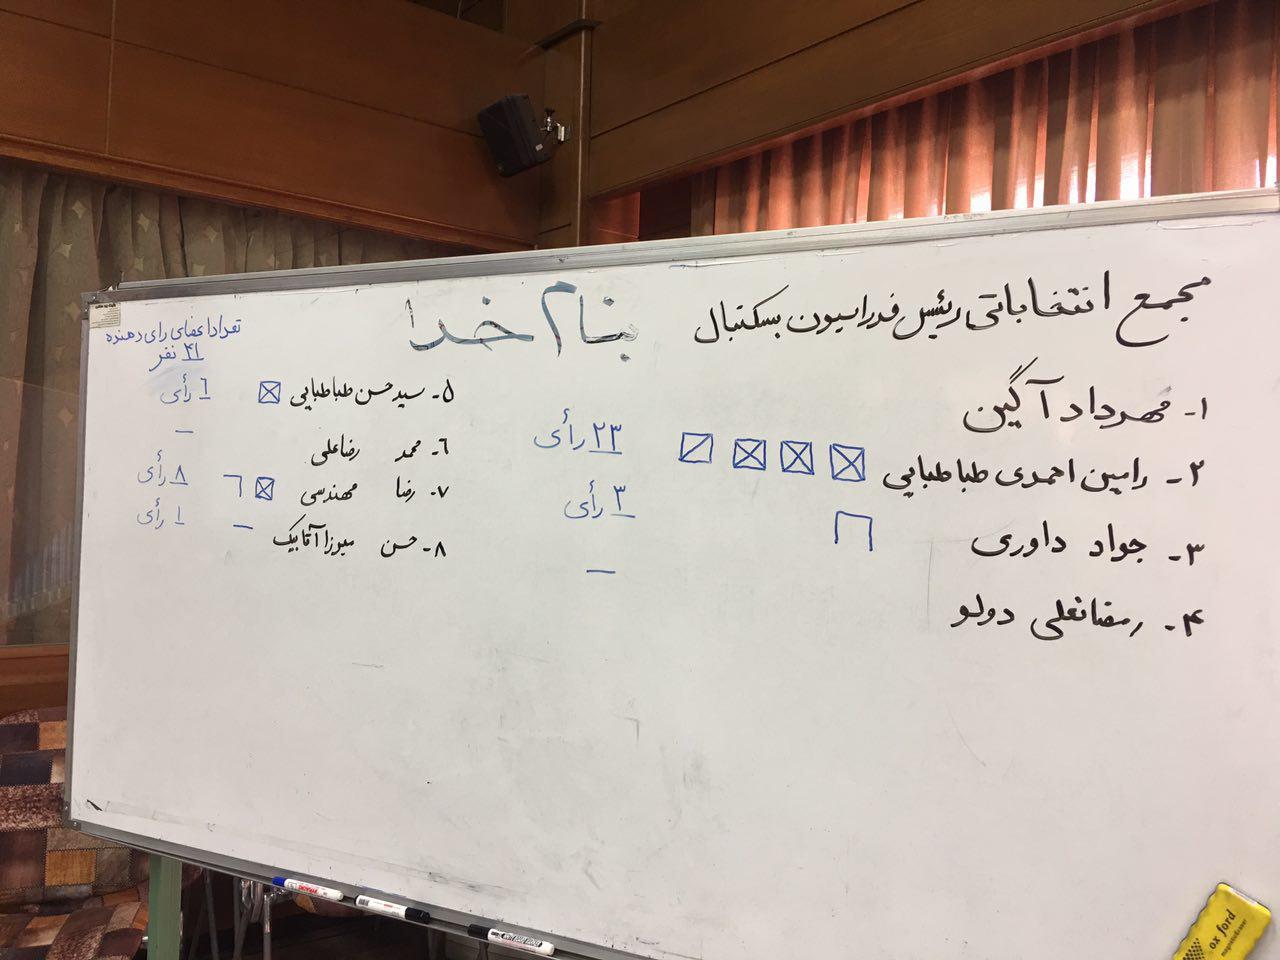 بنام خدا
مجمع انتخاباتی رئیس فدراسیون بسکتبال
تعداد اعضای رای دهنده
۴۱ نفر
۱- مهرداد آگین
۲- رامین احمدی طباطبایی ۲۳ رأی
۳- جواد داوری ۳ رأی
۴- رمضانعلی دولو –
۵- سید حسن طباطبایی ۶ رأی
۶- محمد رضاعلی –
۷- رضا مهندسی ۸ رأی
۸- حسن میرزا آقابیک ۱ رأی
ox ford